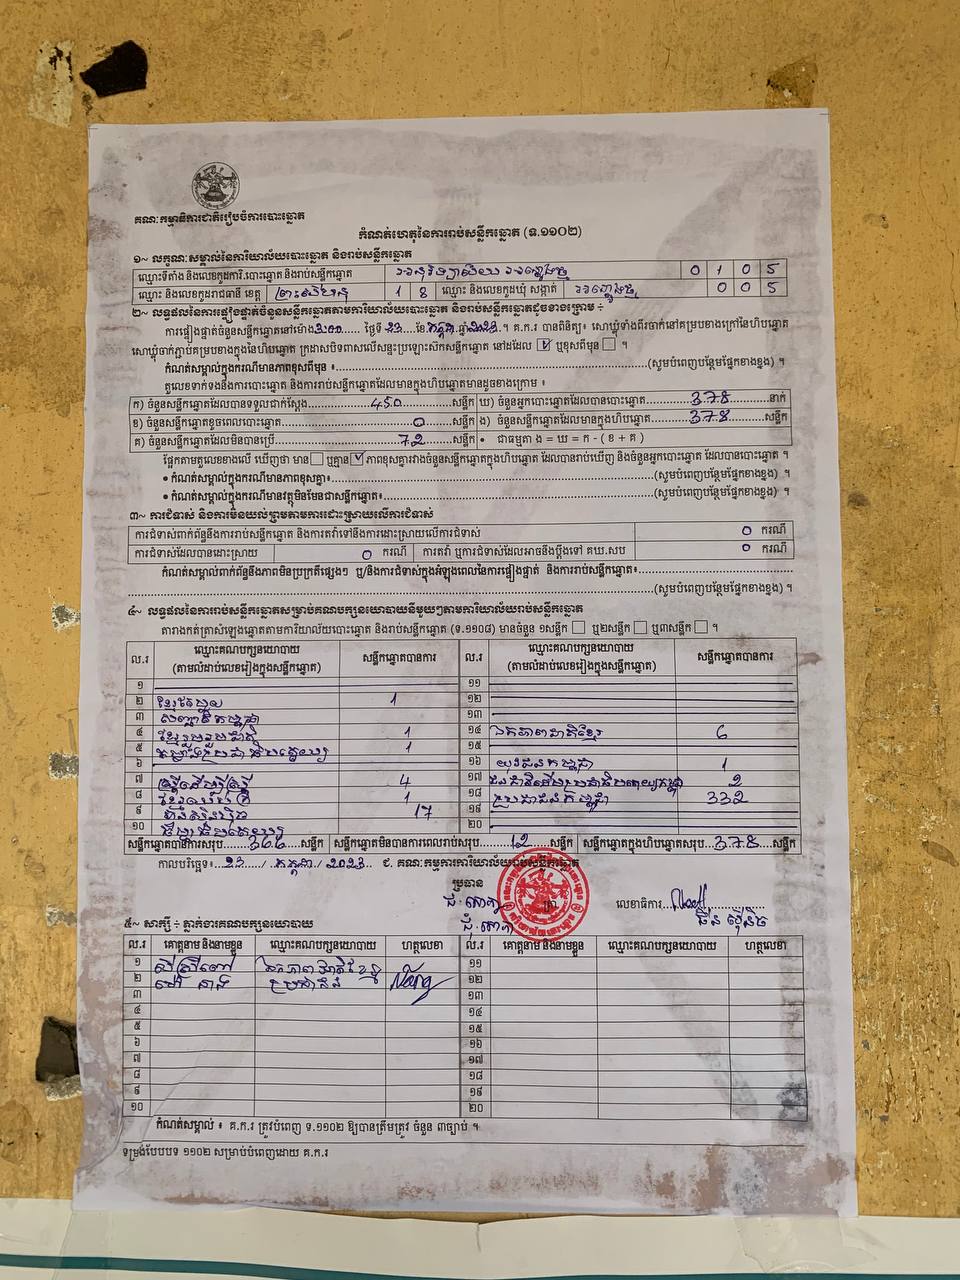 គណៈកម្មាធិការជាតិរៀបចំការបោះឆ្នោត
កំណត់ហេតុនៃការរាប់សន្លឹកឆ្នោត (ទ.១១០២)
១~ លក្ខណៈសម្គាល់នៃការិយាល័យបោះឆ្នោត និងរាប់សន្លឹកឆ្នោត
ឈ្មោះទីតាំង និងលេខកូដការិ.បោះឆ្នោត និងរាប់សន្លឹកឆ្នោត 0 1 0 5
ឈ្មោះ និងលេខកូដរាជធានី ខេត្ត ព្រះសីហនុ 1 8 ឈ្មោះ និងលេខកូដឃុំ សង្កាត់ 0 0 5
២~ លទ្ធផលនៃការផ្ទៀងផ្ទាត់ចំនួនសន្លឹកឆ្នោតតាមការិយាល័យបោះឆ្នោត និងរាប់សន្លឹកឆ្នោតដូចខាងក្រោម ៖
ការផ្ទៀងផ្ទាត់ចំនួនសន្លឹកឆ្នោតនៅម៉ោង 3:00 ថ្ងៃទី 23 ខែ កក្កដា ឆ្នាំ 2023 ។ គ.ក.រ បានពិនិត្យ៖ សោឃ្លុំទាំងពីរចាក់នៅគម្របខាងក្រៅនៃហិបឆ្នោត
សោឃ្លុំចាក់ភ្ជាប់គម្របខាងក្នុងនៃហិបឆ្នោត ក្រដាសបិទពាសលើសន្ទះប្រឡោះសិកសន្លឹកឆ្នោត នៅដដែល ☑ ឬខុសពីមុន ☐ ។
កំណត់សម្គាល់ក្នុងករណីមានភាពខុសពីមុន ៖ (សូមបំពេញបន្ថែមផ្នែកខាងខ្នង) ។
តួលេខទាក់ទងនឹងការបោះឆ្នោត និងការរាប់សន្លឹកឆ្នោតដែលមានក្នុងហិបឆ្នោតមានដូចខាងក្រោម ៖
ក) ចំនួនសន្លឹកឆ្នោតដែលបានទទួលជាក់ស្តែង 450 សន្លឹក ឃ) ចំនួនអ្នកបោះឆ្នោតដែលបានបោះឆ្នោត 378 នាក់
ខ) ចំនួនសន្លឹកឆ្នោតខូចពេលបោះឆ្នោត 0 សន្លឹក ង) ចំនួនសន្លឹកឆ្នោតដែលមានក្នុងហិបឆ្នោត 378 សន្លឹក
គ) ចំនួនសន្លឹកឆ្នោតដែលមិនបានប្រើ 72 សន្លឹក • ជាធម្មតា ង = ឃ = ក - ( ខ + គ )
ផ្អែកតាមតួលេខខាងលើ ឃើញថា មាន ☐ ឬគ្មាន ☑ ភាពខុសគ្នារវាងចំនួនសន្លឹកឆ្នោតក្នុងហិបឆ្នោត ដែលបានរាប់ឃើញ និងចំនួនអ្នកបោះឆ្នោត ដែលបានបោះឆ្នោត ។
• កំណត់សម្គាល់ក្នុងករណីមានភាពខុសគ្នា៖ (សូមបំពេញបន្ថែមផ្នែកខាងខ្នង) ។
• កំណត់សម្គាល់ក្នុងករណីមានវត្ថុមិនមែនជាសន្លឹកឆ្នោត៖ (សូមបំពេញបន្ថែមផ្នែកខាងខ្នង) ។
៣~ ការជំទាស់ និងការមិនយល់ព្រមតាមការដោះស្រាយលើការជំទាស់
ការជំទាស់ពាក់ព័ន្ធនឹងការរាប់សន្លឹកឆ្នោត និងការតវ៉ាទៅនឹងការដោះស្រាយលើការជំទាស់ 0 ករណី
ការជំទាស់ដែលបានដោះស្រាយ 0 ករណី ការតវ៉ា ឬការជំទាស់ដែលអាចនឹងប្តឹងទៅ គឃ.សប 0 ករណី
កំណត់សម្គាល់ពាក់ព័ន្ធនឹងភាពមិនប្រក្រតីផ្សេងៗ ឬ/និងការជំទាស់ក្នុងអំឡុងពេលនៃការផ្ទៀងផ្ទាត់ និងការរាប់សន្លឹកឆ្នោត៖
(សូមបំពេញបន្ថែមផ្នែកខាងខ្នង) ។
៤~ លទ្ធផលនៃការរាប់សន្លឹកឆ្នោតសម្រាប់គណបក្សនយោបាយនីមួយៗតាមការិយាល័យរាប់សន្លឹកឆ្នោត
តារាងកត់ត្រាសំឡេងឆ្នោតតាមការិយាល័យបោះឆ្នោត និងរាប់សន្លឹកឆ្នោត (ទ.១១០៨) មានចំនួន ១សន្លឹក ☐ ឬ២សន្លឹក ☐ ឬ៣សន្លឹក ☐ ។
ល.រ ឈ្មោះគណបក្សនយោបាយ សន្លឹកឆ្នោតបានការ ល.រ ឈ្មោះគណបក្សនយោបាយ សន្លឹកឆ្នោតបានការ
(តាមលំដាប់លេខរៀងក្នុងសន្លឹកឆ្នោត) (តាមលំដាប់លេខរៀងក្នុងសន្លឹកឆ្នោត)
១ ១១
២ 1 ១២
៣ ១៣
៤ 1 ១៤ ឯកភាពជាតិខ្មែរ 6
៥ 1 ១៥
៦ ១៦ យុវជនកម្ពុជា 1
៧ 4 ១៧ 2
៨ 1 ១៨ ប្រជាជនកម្ពុជា 332
៩ 17 ១៩
១០ 20
សន្លឹកឆ្នោតបានការសរុប 366 សន្លឹក សន្លឹកឆ្នោតមិនបានការពេលរាប់សរុប 12 សន្លឹក សន្លឹកឆ្នោតក្នុងហិបឆ្នោតសរុប 378 សន្លឹក
កាលបរិច្ឆេទ៖ 23 / កក្កដា / 2023 ជ. គណៈកម្មការការិយាល័យរាប់សន្លឹកឆ្នោត
ប្រធាន
លេខាធិការ
៥~ សាក្សី ÷ ភ្នាក់ងារគណបក្សនយោបាយ
ល.រ គោត្តនាម និងនាមខ្លួន ឈ្មោះគណបក្សនយោបាយ ហត្ថលេខា ល.រ គោត្តនាម និងនាមខ្លួន ឈ្មោះគណបក្សនយោបាយ ហត្ថលេខា
១ ឯកភាពជាតិខ្មែរ ១១
២ ប្រជាជន ១២
៣ ១៣
៤ ១៤
៥ ១៥
៦ ១៦
៧ ១៧
៨ ១៨
៩ ១៩
១០ 20
កំណត់សម្គាល់ ៖ គ.ក.រ ត្រូវបំពេញ ទ.១១០២ ឱ្យបានត្រឹមត្រូវ ចំនួន ៣ច្បាប់ ។
ទម្រង់បែបបទ ១១០២ សម្រាប់បំពេញដោយ គ.ក.រ